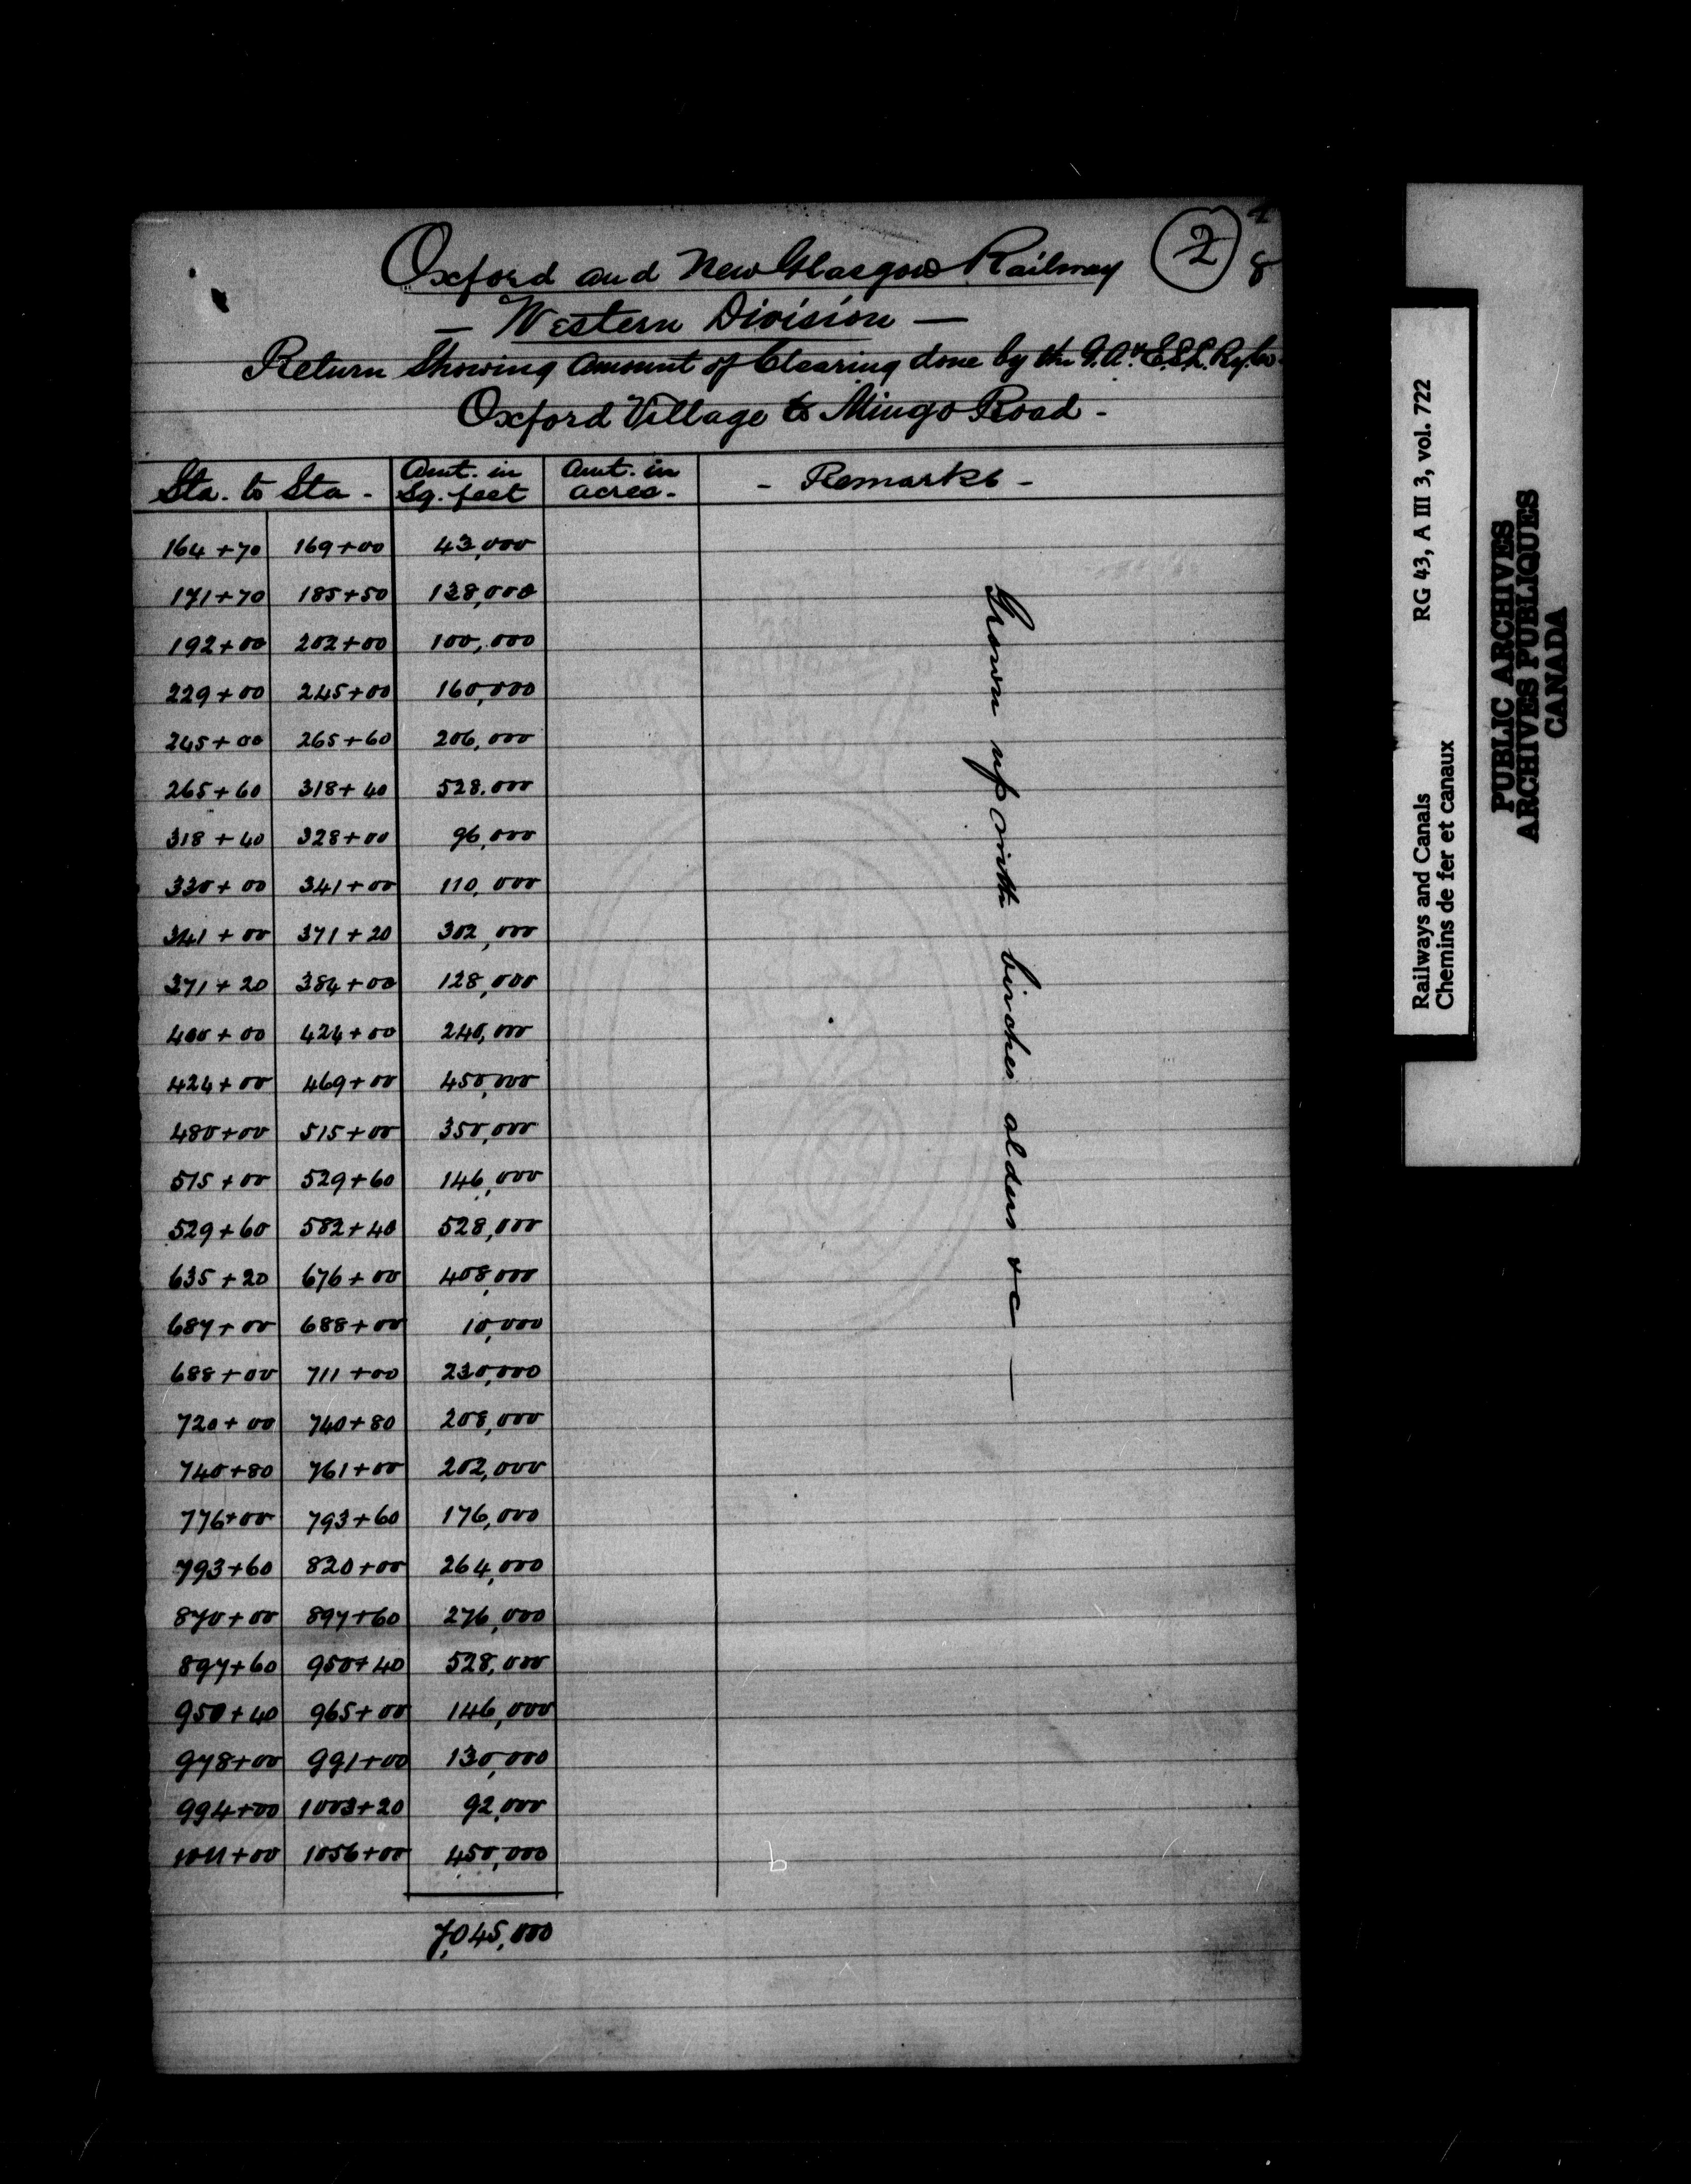 2
8
Oxford and New Glasgow Railway
— Western Division —
Return Showing amount of Clearing done by the G.A. & E.S.L. Ry. Co.
Oxford Village to Mingo Road -
Sta. to Sta - Amt. in Sq. feet Amt. in acres - - Remarks -
164+70 169+00 43,000
171+70 185+50 138,000
192+00 202+00 100,000
229+00 245+00 160,000
245+00 265+60 206,000
265+60 318+40 528.000
318+40 328+00 96,000
330+00 341+00 110,000
341+00 371+20 302,000
371+20 384+00 128,000
400+00 424+00 240,000
424+00 469+00 450,000
480+00 515+00 350,000
515+00 529+60 146,000
529+60 582+40 528,000
635+20 676+00 408,000
687+00 688+00 10,000
688+00 711+00 230,000
720+00 740+80 208,000
740+80 761+00 202,000
776+00 793+60 176,000
793+60 820+00 264,000
870+00 897+60 276,000
897+60 950+40 528,000
950+40 965+00 146,000
978+00 991+00 130,000
994+00 1003+20 92,000
1011+00 1056+00 450,000
7,045,000
Grown up with birches alders &c —
Railways and Canals RG 43, A III 3, vol. 722
Chemins de fer et canaux
PUBLIC ARCHIVES
ARCHIVES PUBLIQUES
CANADA